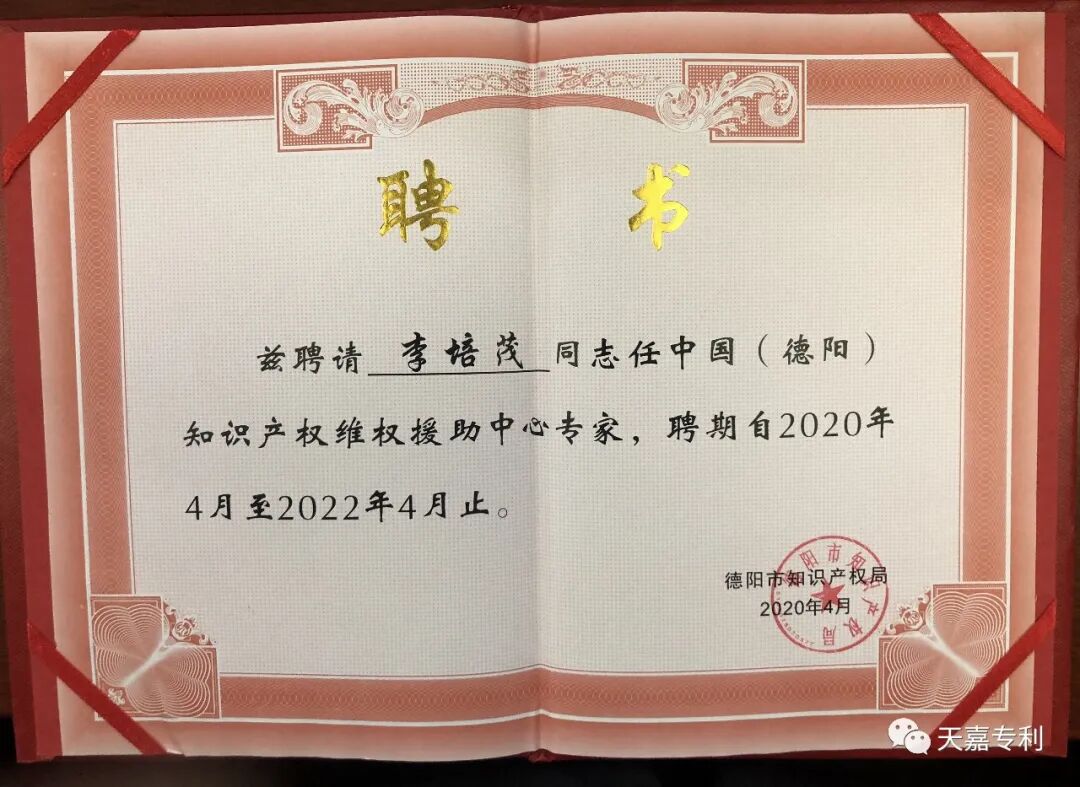 聘 书
兹聘请 李培茂 同志任中国（德阳）
知识产权维权援助中心专家，聘期自2020年
4月至2022年4月止。
德阳市知识产权局
2020年4月
德阳市知识产权局
天嘉专利